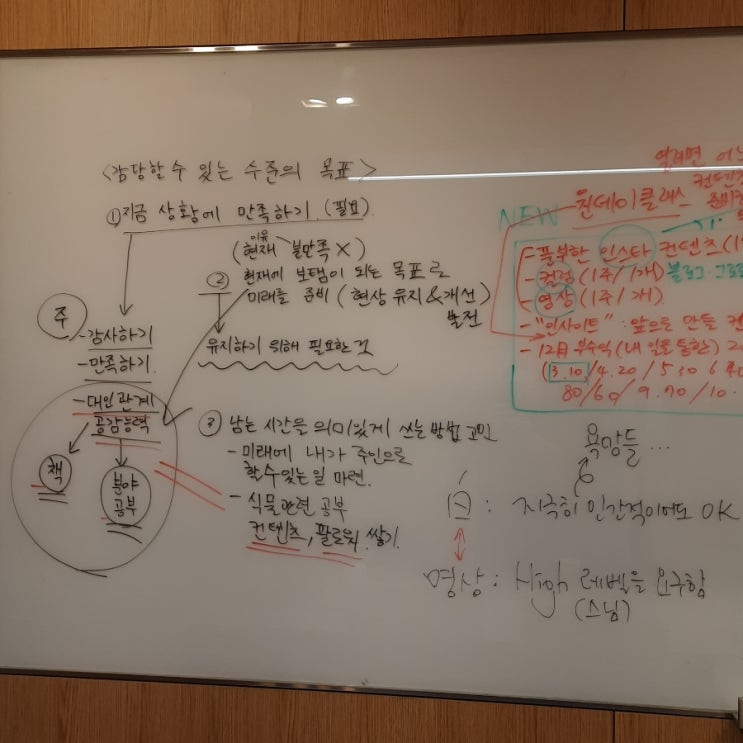 <감당할 수 있는 수준의 목표>
① 지금 상황에 만족하기. (필요)
이유
(현재 불만족 X)
② 현재에 보탬이 되는 목표로
미래를 준비 (현상 유지 & 개선)
발전
유지하기 위해 필요한 것
주
- 감사하기
- 만족하기.
- 대인관계
공감능력
책
분야
공부
③ 남는 시간을 의미있게 쓰는 방법 고민
- 미래에 내가 주인으로
할 수 있는 일 마련.
- 식물관련 공부
컨텐츠, 팔로워 쌓기.
열려면
컨텐츠
NEW
원데이클래스
- 풍부한 인스타 컨텐츠 (1
- 컬럼 (1주/1개) 블로그
- 영상 (1주/1개)
- "인사이트" : 앞으로 만들
- 12월 부수익 (내 일을 통한)
(3.10/4.20/5.30
80/60/9.90/10.
욕망들 ...
: 지극히 인간적이어도 OK
명상 : High 레벨을 요구함
(스님)